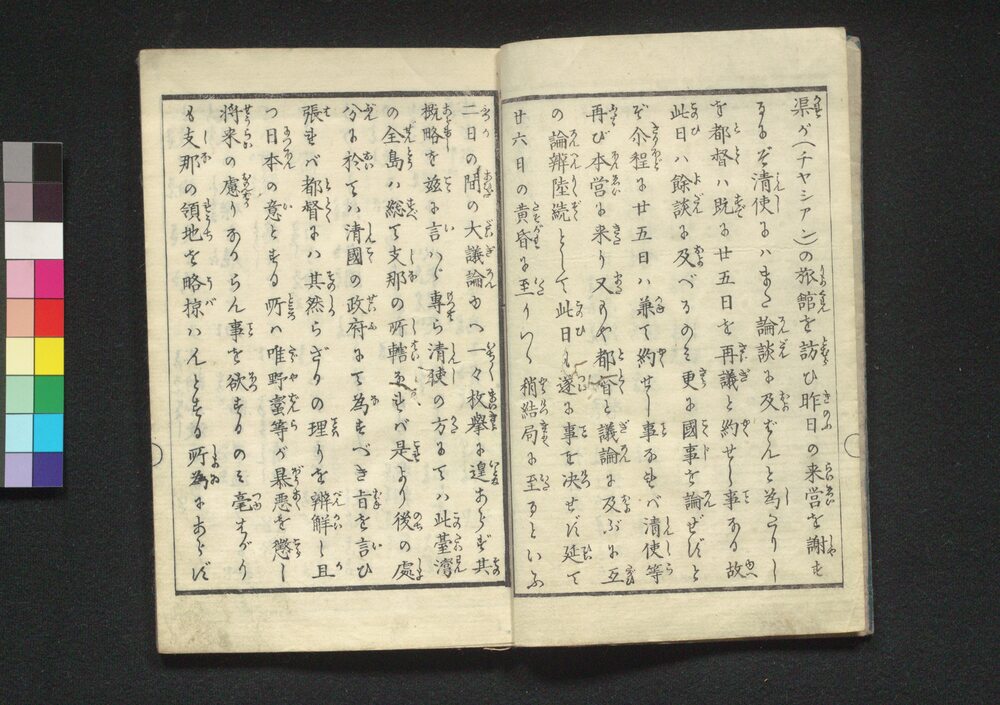 渠が(チヤシアン)の旅館を訪ひ昨日の来営を謝す
るるぞ清使にハまた論談に及ばんと為たりし
を都督ハ既に廿五日を再議と約せし事ある故
此日ハ餘談に及べるのミ更に國事を論ぜずと
ぞ尒程に廿五日ハ兼て約せし事なれバ清使等
再び本営に来り又もや都督と議論に及ぶに互
の論辨陸続として此日も遂に事を决せず延て
廿六日の黄昏に至りいよ〱稍結局に至るといふ
二日の間の大議論中へ一々枚擧に遑あらず其
概略を茲に言ハゞ專ら清使の方にてハ此臺湾
の全島ハ総て支那の所轄なれバ是より後の處
分に於てハ清國の政府にて為すべき旨を言ひ
張れバ都督にハ其然らざりの理りを辨解し且
つ日本の意とする所ハ唯野蛮等が暴悪を懲し
将来の慮りなからん事を欲するのミ毫すがり
も支那の領地を略掠ハんとする所為にあらず